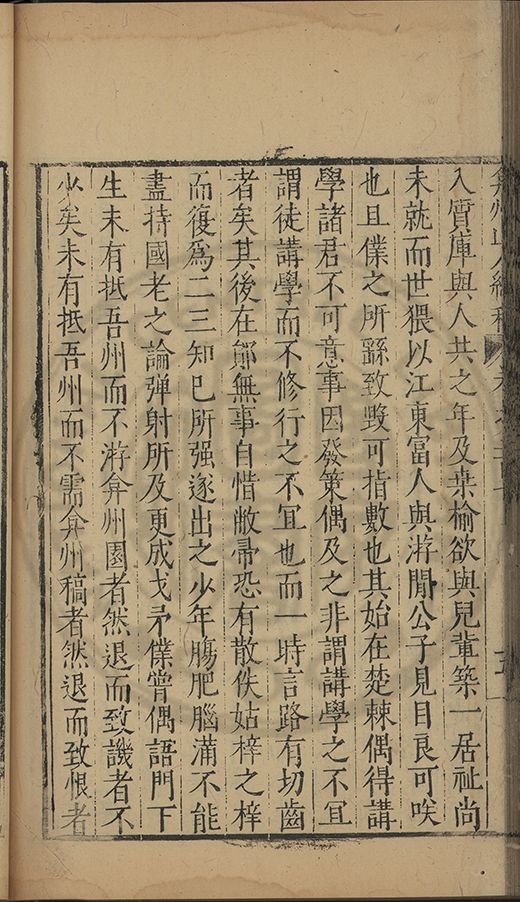 弇州山人續稿
入質庫與人共之年及桒榆欲與兒軰築一居祉尚
未就而世猥以江東富人與游閒公子見目良可咲
也且僕之所繇致毀可指數也其始在楚棘偶得講
學諸君不可意事因發策偶及之非謂講學之不冝
謂徒講學而不修行之不冝也而一時言路有切齒
者矣其後在鄖無事自惜敝帚恐有散佚姑梓之梓
而復爲二三知己所强遂出之少年腸肥腦滿不能
盡持國老之論弹射所及更成戈矛僕嘗偶語門下
生未有抵吾州而不游弇州園者然退而致譏者不
少矣未有抵吾州而不需弇州稿者然退而致恨者